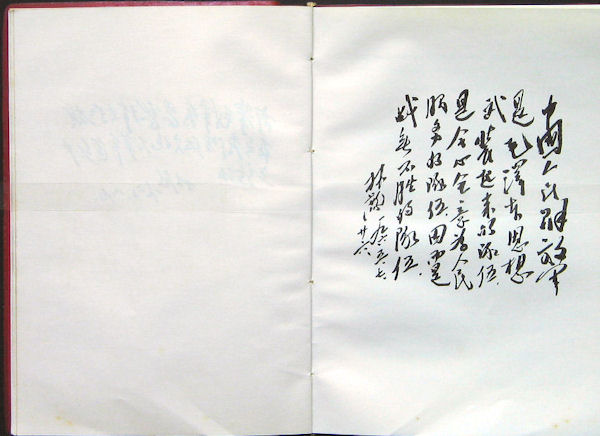 中國人民解放军
是毛澤东思想
武装起来的队伍,
是全心全意为人民
服务的队伍,因而是
战无不胜的队伍。
林彪 一九六五、七、
廿六